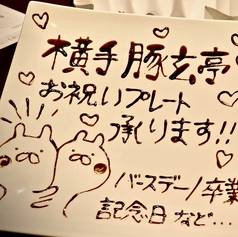 横手豚玄亭
お祝いプレート
承ります!!
バースデー/卒業
記念日など...